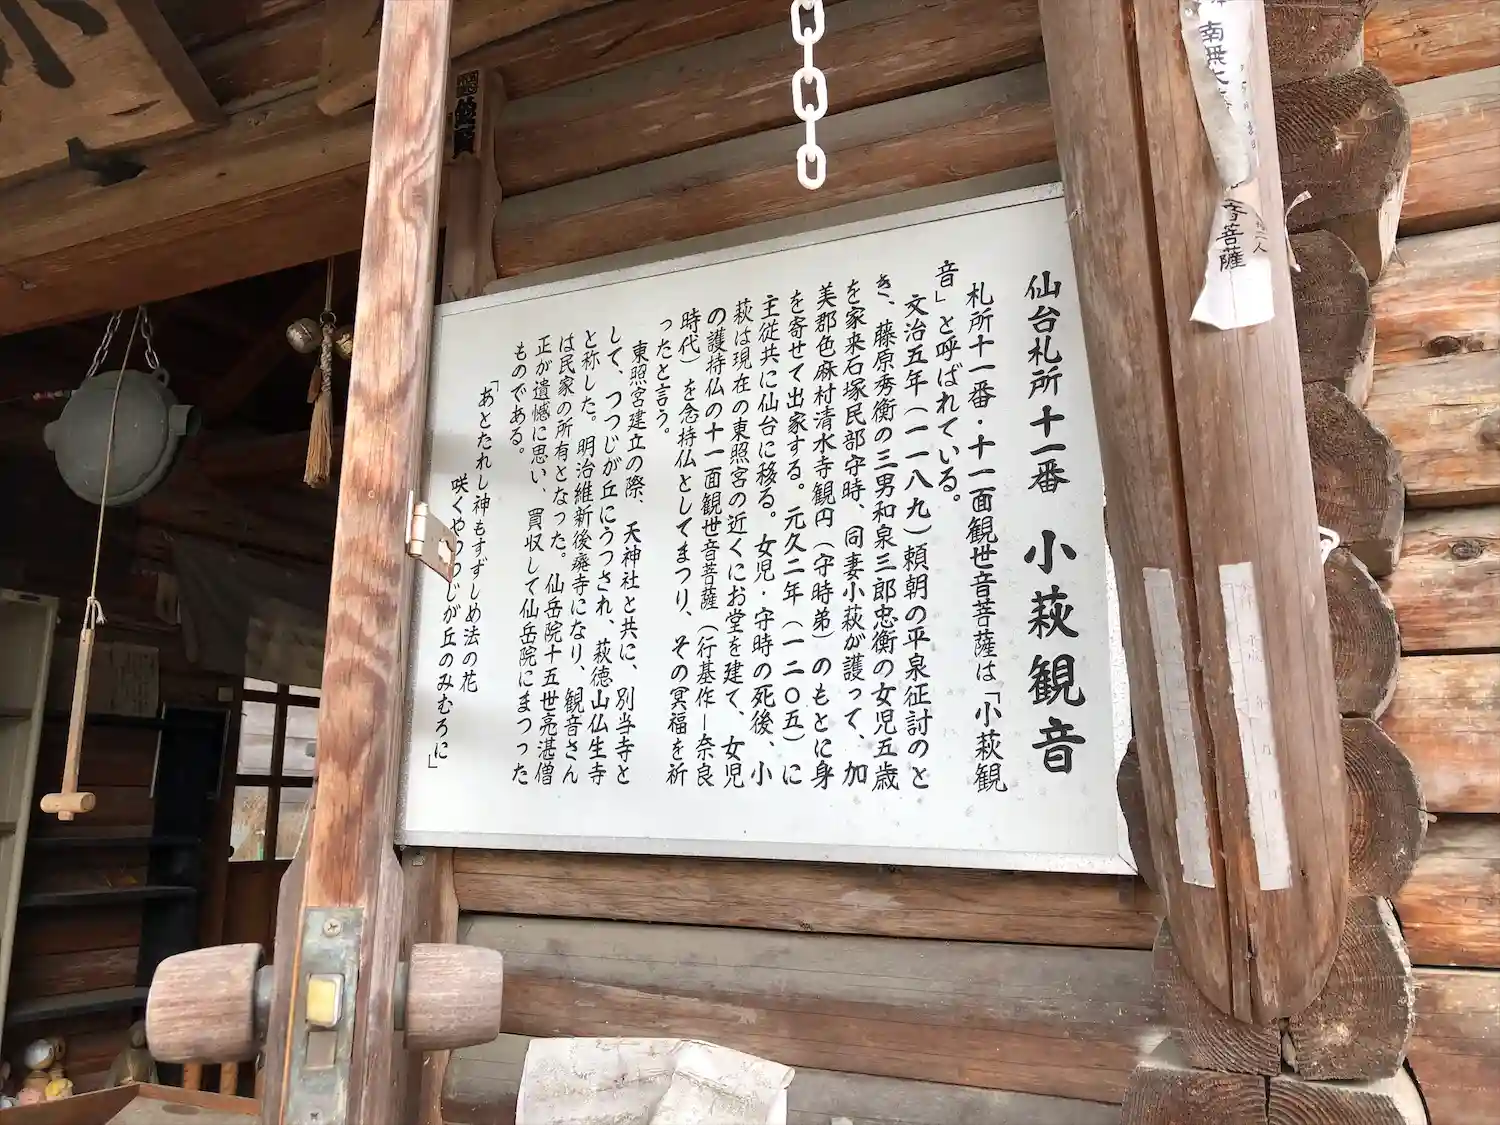 仙台札所十一番　小萩観音
札所十一番・十一面観世音菩薩は「小萩観
音」と呼ばれている。
文治五年（一一八九）頼朝の平泉征討のと
き、藤原秀衡の三男和泉三郎忠衡の女児五歳
を家来石塚民部守時、同妻小萩が護って、加
美郡色麻村清水寺観円（守時弟）のもとに身
を寄せて出家する。元久二年（一二〇五）に
主従共に仙台に移る。女児・守時の死後、小
萩は現在の東照宮の近くにお堂を建て、女児
の護持仏の十一面観世音菩薩（行基作ー奈良
時代）を念持仏としてまつり、その冥福を祈
ったと言う。
東照宮建立の際、天神社と共に、別当寺と
して、つつじが丘にうつされ、萩徳山仏生寺
と称した。明治維新後癈寺になり、観音さん
は民家の所有となった。仙岳院十五世亮湛僧
正が遺憾に思い、買収して仙岳院にまつった
ものである。
「あとたれし神もすずしめ法の花
咲くやつつじが丘のみむろに」
南無大
音菩薩